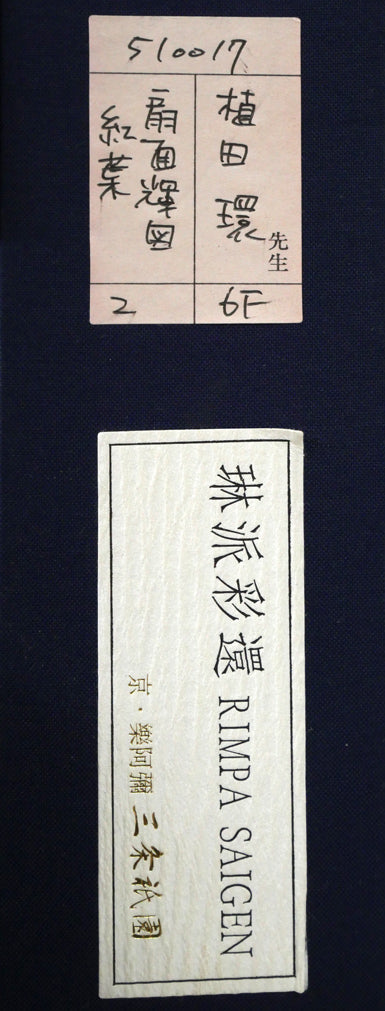 510017
植田 環 先生
扇面輝図
紅葉
6F
2
琳派彩還 RIMPA SAIGEN
京・樂阿彌 三条祇園